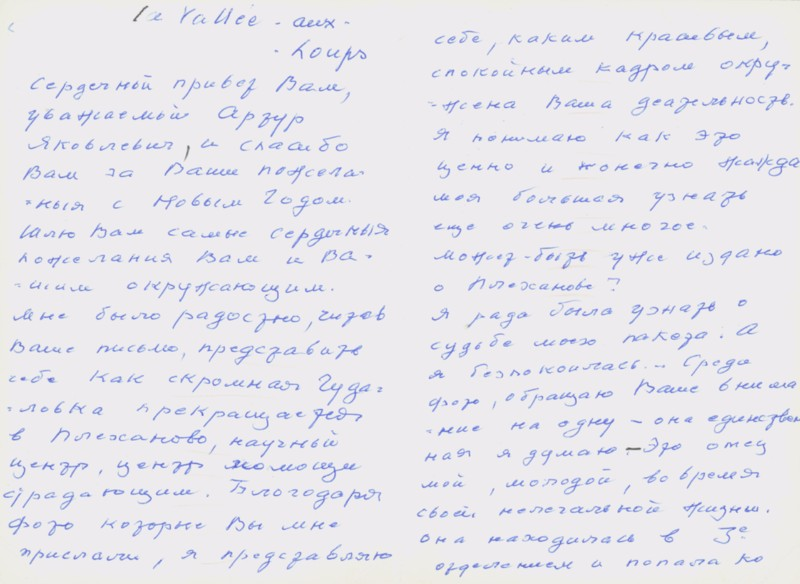 La Vallée - aux -
- Loups
Сердечный привет Вам,
уважаемый Артур
Яковлевич, и спасибо
Вам за Ваши пожела-
-ния с Новым Годом.
Шлю Вам самые сердечныя
пожелания Вам и Ва-
-шим окружающим.
Мне было радостно, читав
Ваше письмо, представить
себе как скромная Гуда-
-ловка прекращается
в Плеханово, научный
центр, центр помощи
страдающим. Благодаря
фото которые Вы мне
прислали, я представляю
себе, каким красивым,
спокойным кадром окру-
-жена Ваша деятельность.
Я понимаю как это
ценно и конечно жажда
моя большая узнать
еще очень многое.
Может-быть уже издано
о Плеханове?
Я рада была узнать о
судьбе моего пакета. А
я безпокоилась... Среди
фото, обращаю Ваше внима
-ние на одну - она единствен
ная я думаю - Это отец
мой, молодой, во время
своей нелегальной жизни.
Она находилась в 3е.
отделением и попала ко